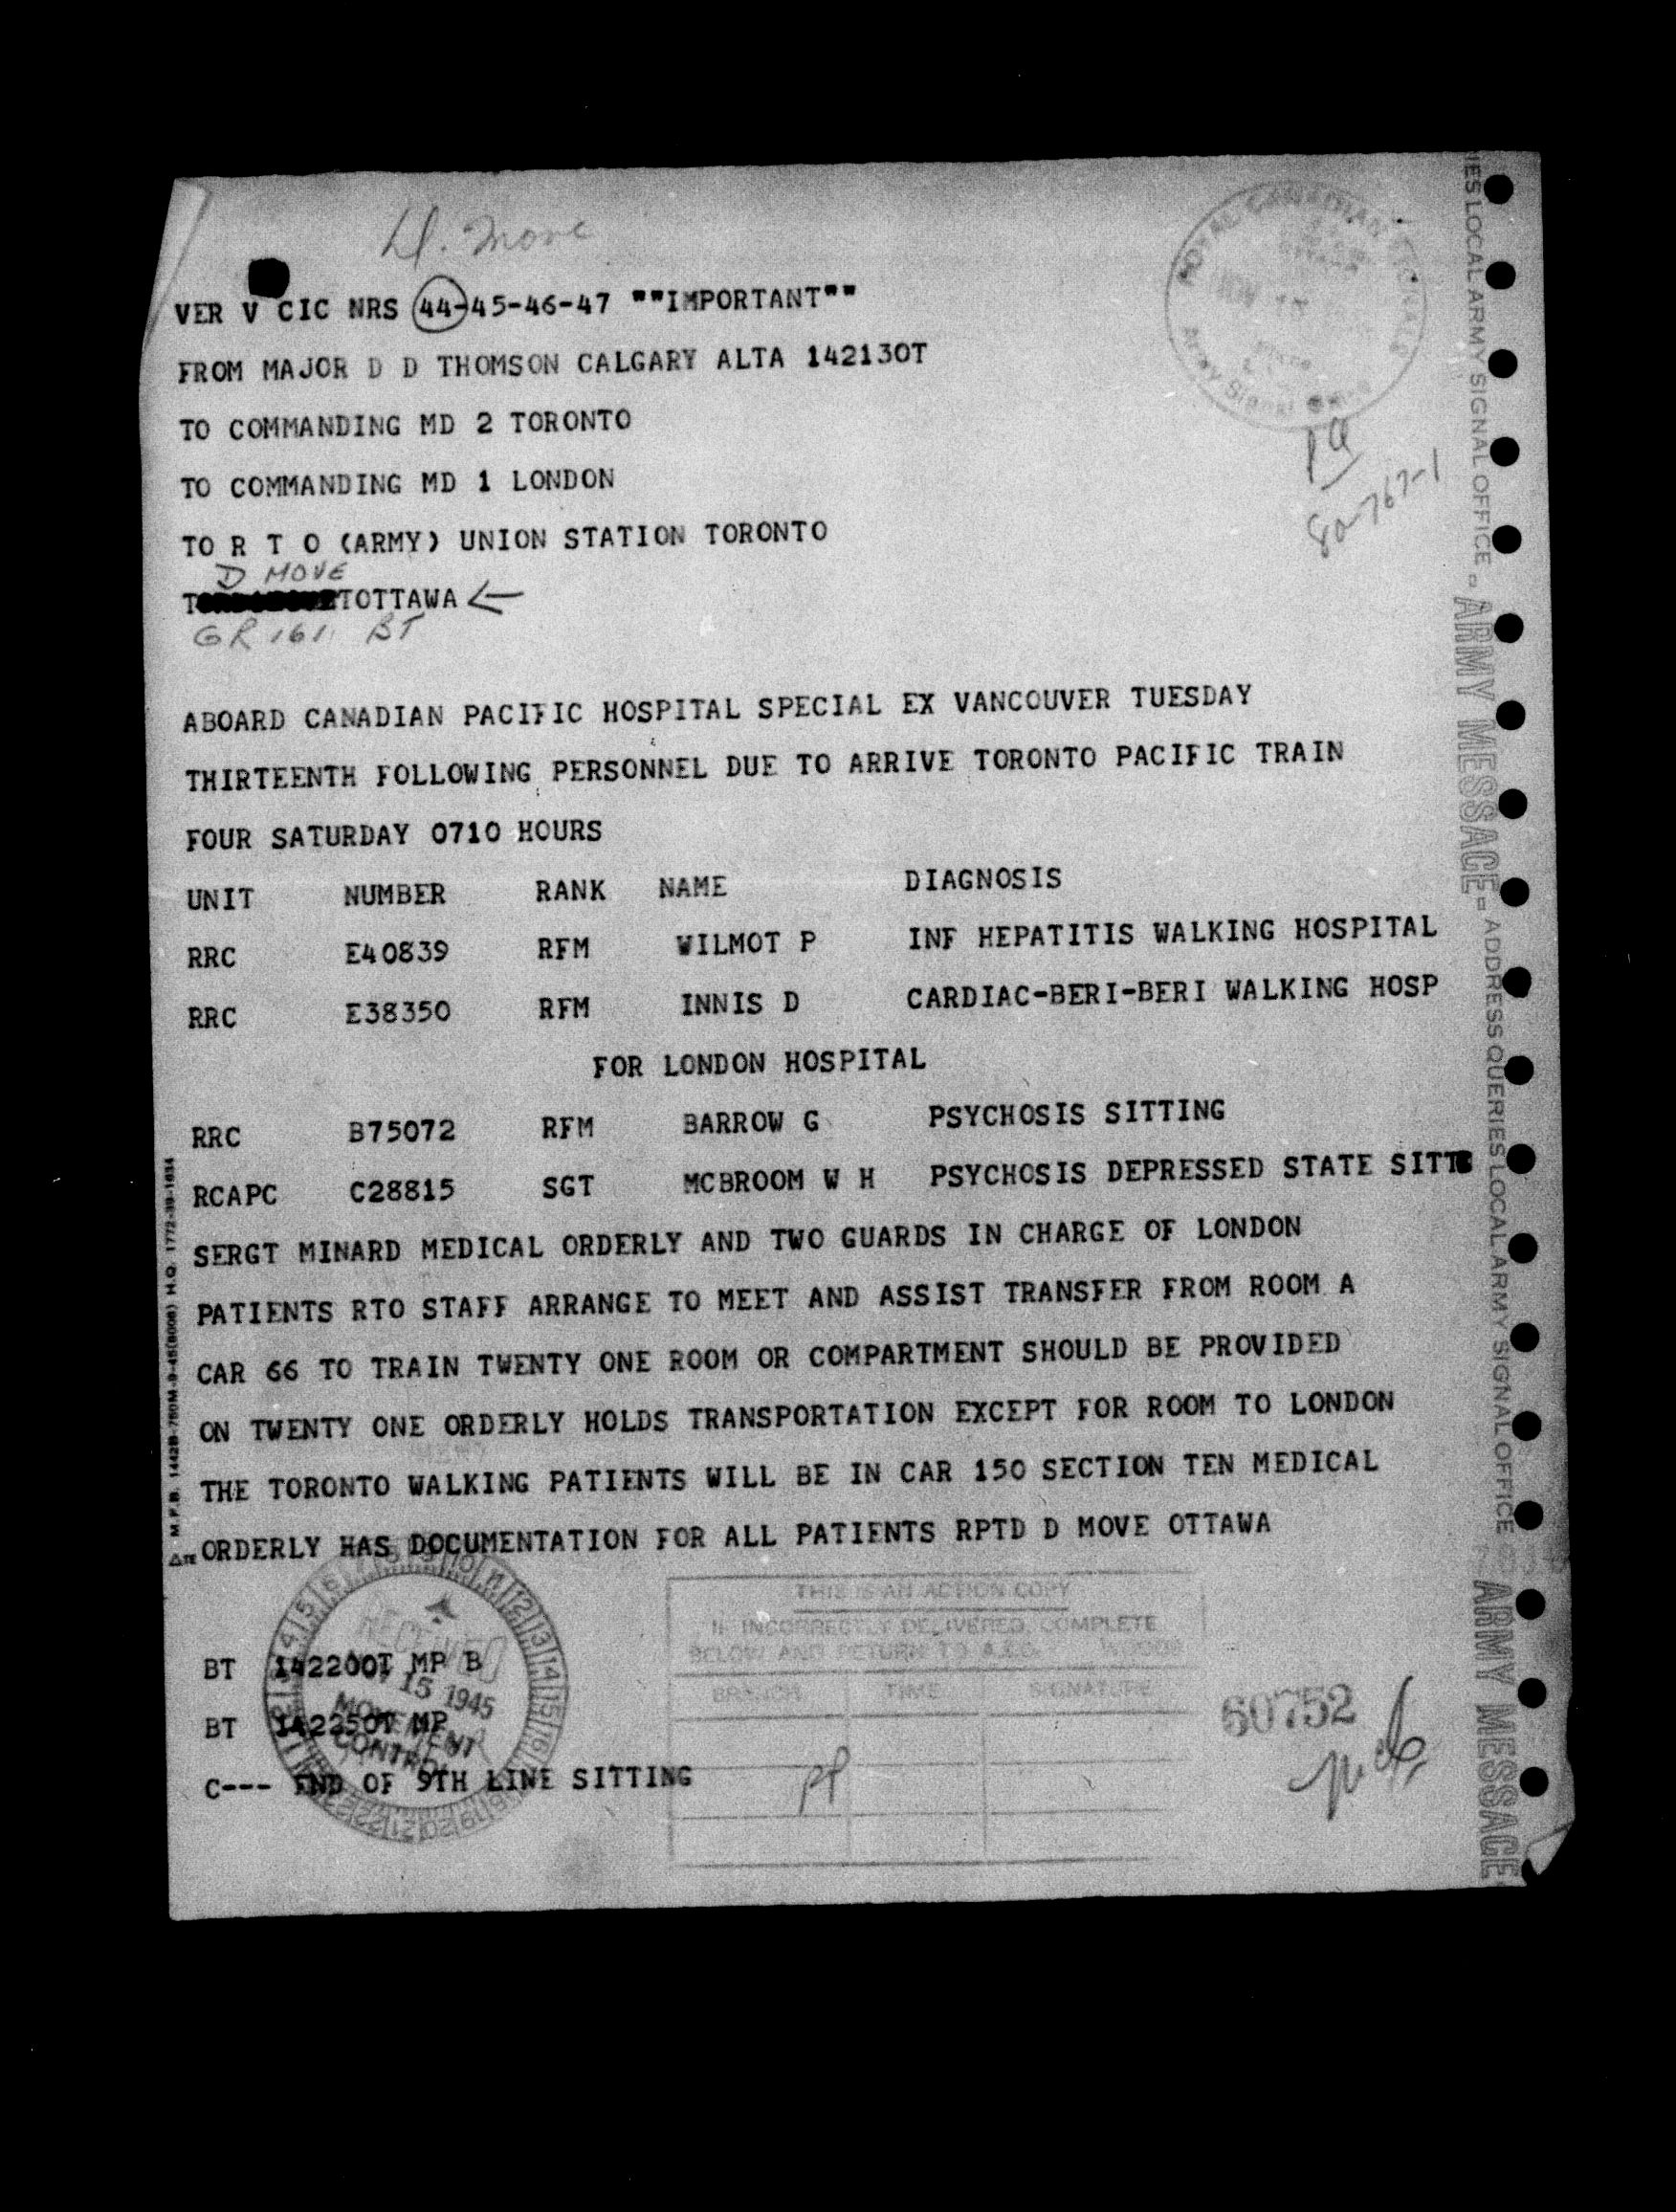 D. Move
VER V CIC NRS 44-45-46-47 ""IMPORTANT""
FROM MAJOR D D THOMSON CALGARY ALTA 142130T
TO COMMANDING MD 2 TORONTO
TO COMMANDING MD 1 LONDON
TO R T O (ARMY) UNION STATION TORONTO
D MOVE
TOTTAWA
GR 161 BT
ROYAL CANADIAN SIGNALS
NOV 15
Army Signal Office
80-767-1
ABOARD CANADIAN PACIFIC HOSPITAL SPECIAL EX VANCOUVER TUESDAY
THIRTEENTH FOLLOWING PERSONNEL DUE TO ARRIVE TORONTO PACIFIC TRAIN
FOUR SATURDAY 0710 HOURS
UNIT NUMBER RANK NAME DIAGNOSIS
RRC E40839 RFM WILMOT P INF HEPATITIS WALKING HOSPITAL
RRC E38350 RFM INNIS D CARDIAC-BERI-BERI WALKING HOSP
FOR LONDON HOSPITAL
RRC B75072 RFM BARROW G PSYCHOSIS SITTING
RCAPC C28815 SGT MCBROOM W H PSYCHOSIS DEPRESSED STATE SITT
SERGT MINARD MEDICAL ORDERLY AND TWO GUARDS IN CHARGE OF LONDON
PATIENTS RTO STAFF ARRANGE TO MEET AND ASSIST TRANSFER FROM ROOM A
CAR 66 TO TRAIN TWENTY ONE ROOM OR COMPARTMENT SHOULD BE PROVIDED
ON TWENTY ONE ORDERLY HOLDS TRANSPORTATION EXCEPT FOR ROOM TO LONDON
THE TORONTO WALKING PATIENTS WILL BE IN CAR 150 SECTION TEN MEDICAL
ORDERLY HAS DOCUMENTATION FOR ALL PATIENTS RPTD D MOVE OTTAWA
BT 142200T MP B
BT 142250T MP
C--- END OF 9TH LINE SITTING
RECEIVED
15 1945
MOVEMENT
CONTROL
THIS IS AN ACTION COPY
IF INCORRECTLY DELIVERED, COMPLETE
BELOW AND RETURN TO A.S.O.
BRANCH TIME SIGNATURE
60752
M.F.B. 1442B-750M-9-45(8008) H.Q. 1772-39-1634
IES LOCAL ARMY SIGNAL OFFICE - ARMY MESSAGE - ADDRESS QUERIES LOCAL ARMY SIGNAL OFFICE ARMY MESSAGE